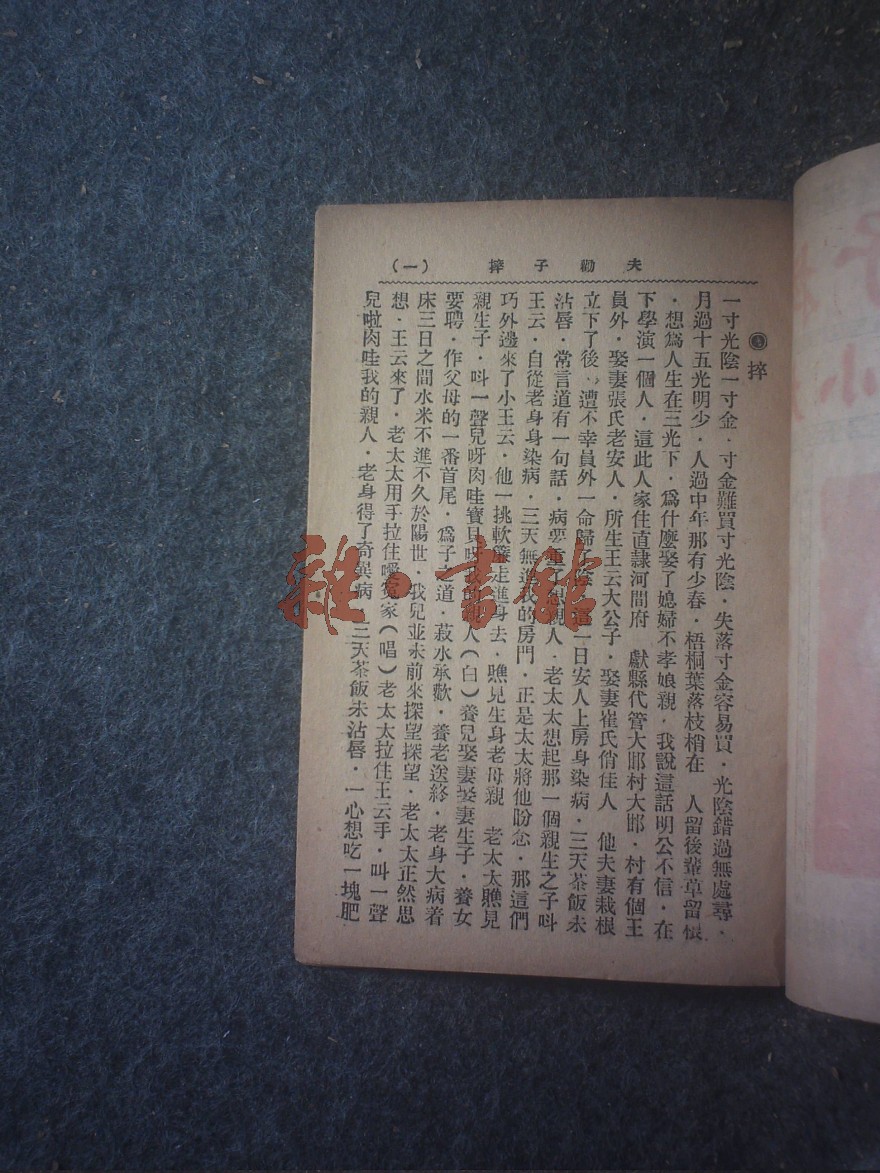 夫勸子摔 (一)
摔
一寸光陰一寸金．寸金難買寸光陰．失落寸金容易買．光陰錯過無處尋．
月過十五光明少．人過中年那有少春．梧桐葉落枝梢在　人留後輩草留根
．想爲人生在三光下．爲什麼娶了媳婦不孝娘親．我說這話明公不信．在
下學演一個人．這此人家住直隸河間府　獻縣代管大邯村大邯．村有個王
員外．娶妻張氏老安人．所生王云大公子．娶妻崔氏俏佳人　他夫妻栽根
立下了後．遭不幸員外一命歸了陰．這一日安人上房身染病．三天茶飯未
沾唇．常言道有一句話．病要重了想親人．老太太想起那一個親生之子呌
王云．自從老身身染病．三天無進我的房門．正是太太將他盼念．那這們
巧外邊來了小王云．他一挑軟簾走進身去．瞧見生身老母親　老太太瞧見
親生子．呌一聲兒呀肉哇寶貝呀我的親人(白)養兒娶妻娶妻生子．養女
要聘．作父母的一番首尾．爲子之道．菽水承歡．養老送終．老身大病着
床三日之間水米不進不久於陽世．我兒並未前來探望探望．老太太正然思
想．王云來了．老太太用手拉住噯冤家(唱)老太太拉住王云手．叫一聲
兒啦肉哇我的親人．老身得了奇異病．三天茶飯未沾唇．一心想吃一塊肥
雜·書館